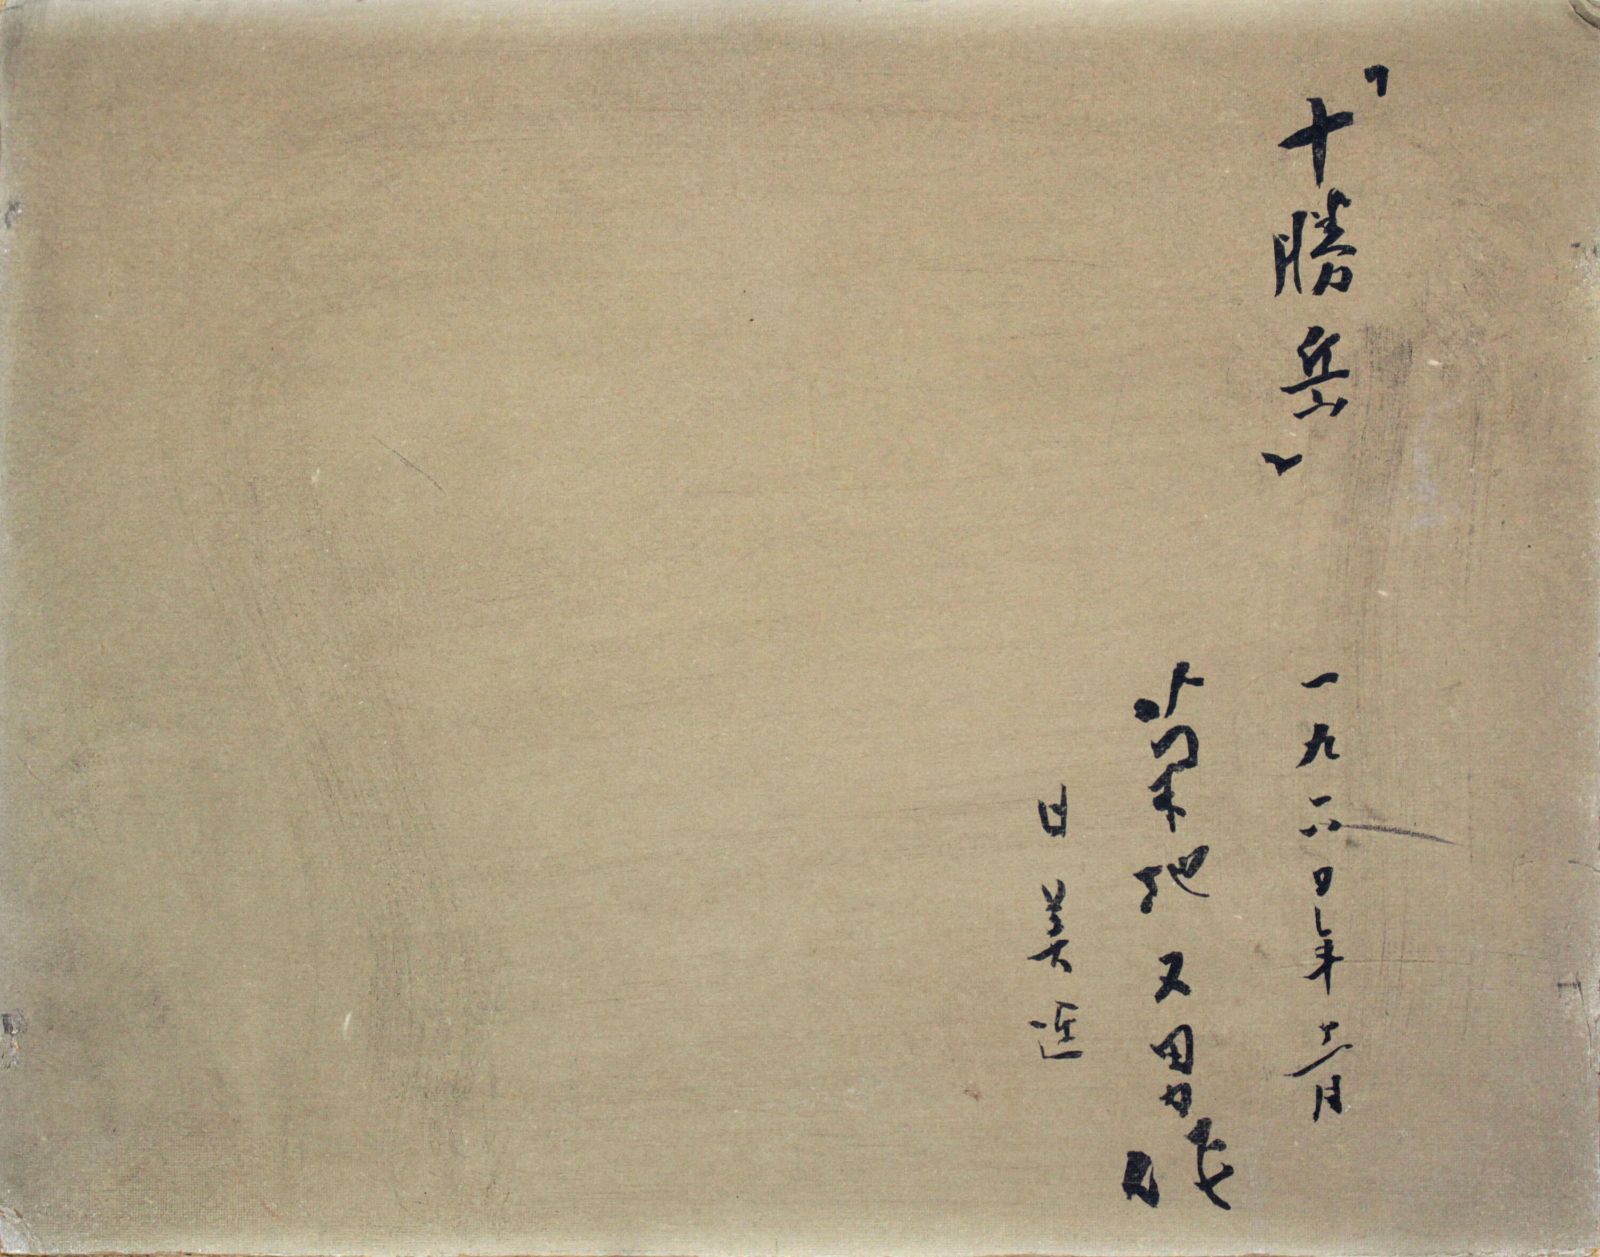 「十勝岳」
一九六〇年十二月
菊地又男作
日美